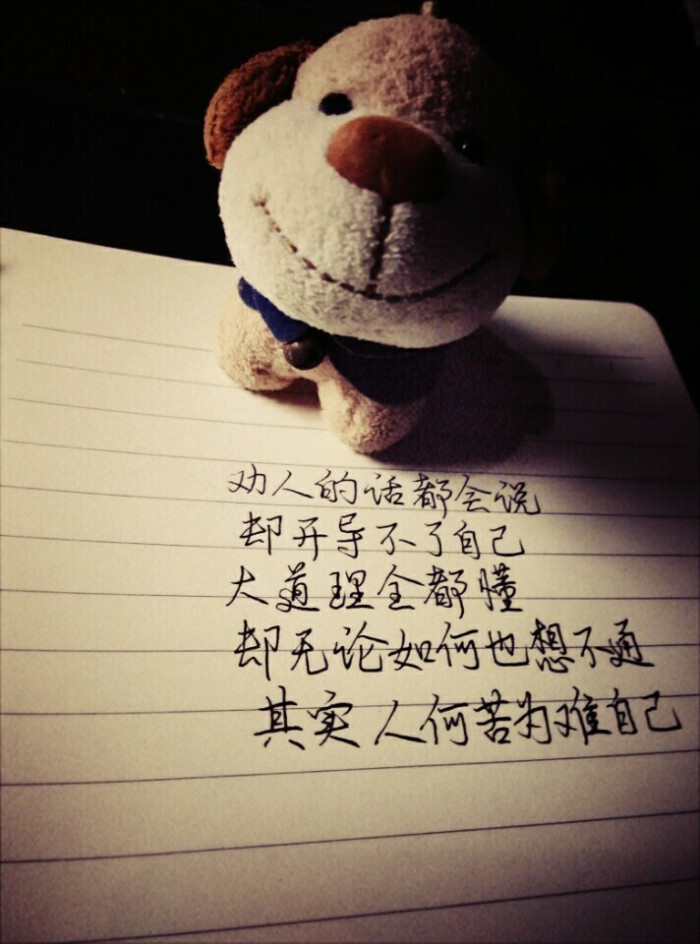 劝人的话都会说
却开导不了自己
大道理全都懂
却无论如何也想不通
其实人何苦为难自己